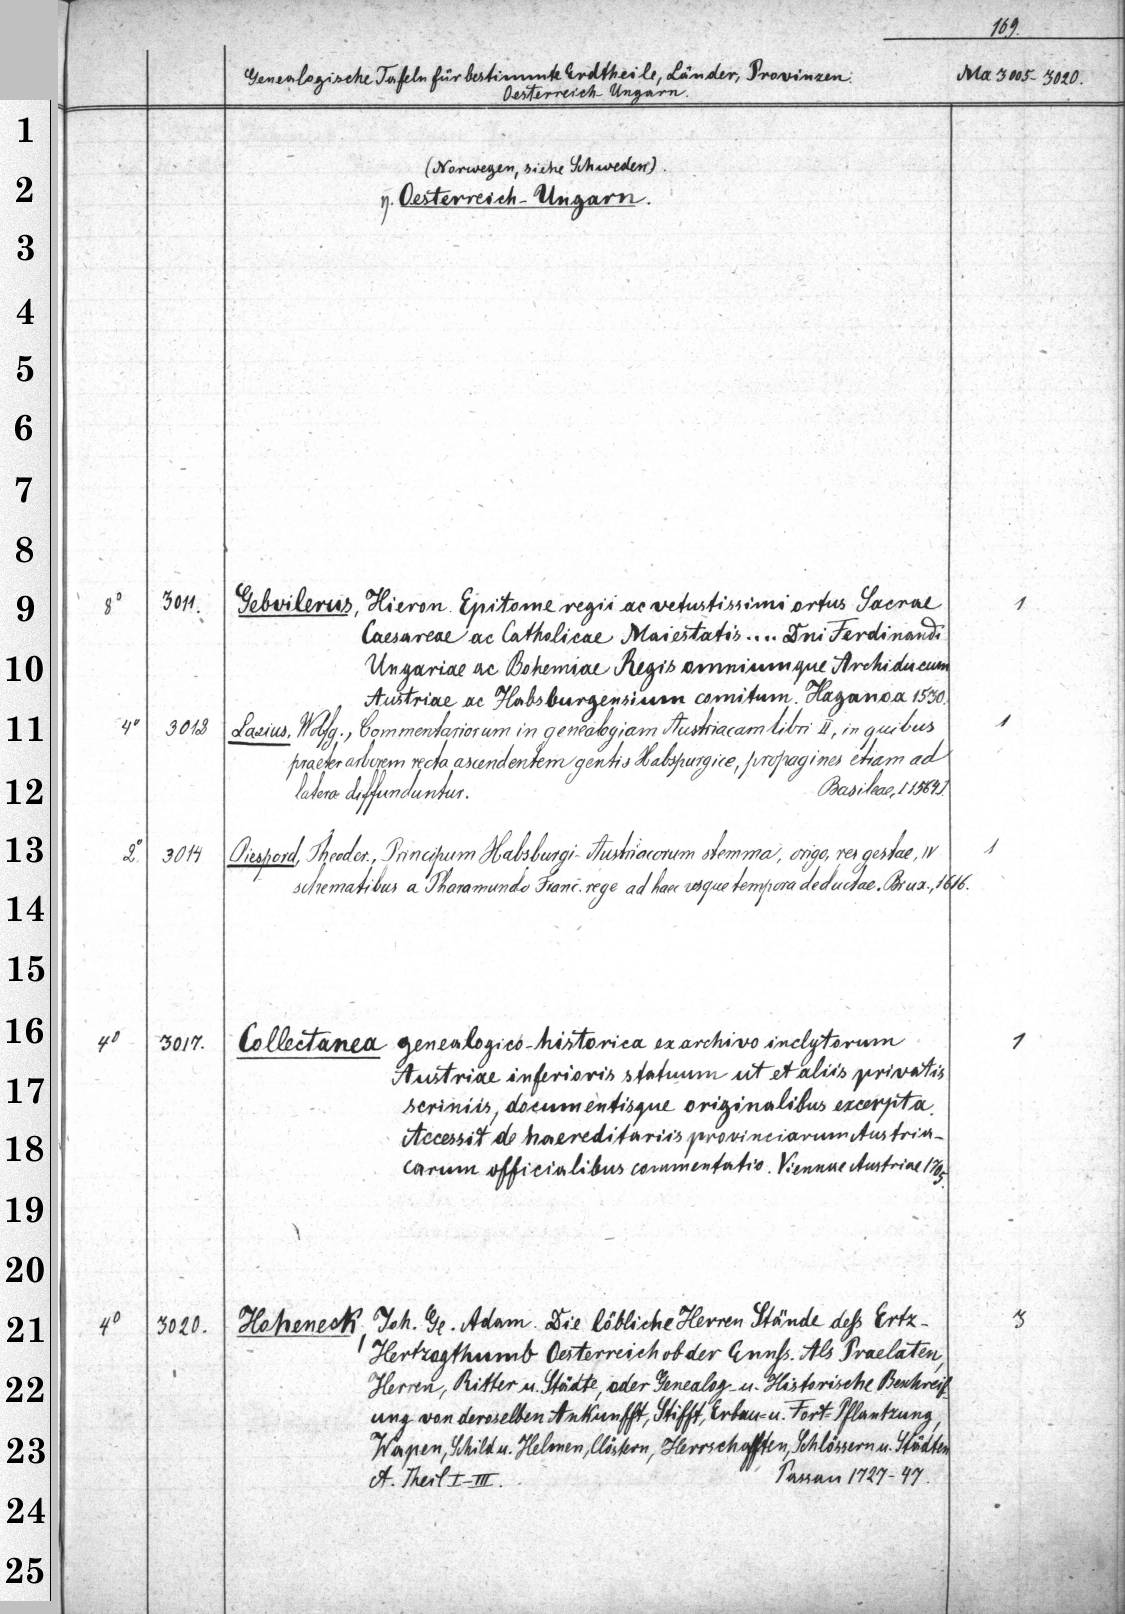 169.
Genealogische Tafeln für bestimmte Erdtheile, Länder, Provinzen. Ma 3005-3020.
Oesterreich-Ungarn.
1
(Norwegen, siehe Schweden).
2 η. Oesterreich-Ungarn.
3
4
5
6
7
8
9 8° 3011. Gebvilerus, Hieron. Epitome regii ac vetustissimi ortus Sacrae 1
Caesareae ac Catholicae Maiestatis .... Dni Ferdinandi
10 Ungariae ac Bohemiae Regis omniumque Archiducum
Austriae ac Habsburgensium comitum. Haganoa 1530.
11 4° 3013 Lazius, Wolfg., Commentariorum in genealogiam Austriacam libri II, in quibus 1
praeter arborem recta ascendentem gentis Habspurgice, propagines etiam ad
12 latera diffunduntur. Basileae, [1564].
13 2° 3014 Piespord, Theoder., Principum Habsburgi-Austriacorum stemma, origo, res gestae, IV 1
schematibus a Pharamundo Franc. rege ad haec usque tempora deductae. Brux., 1616.
14
15
16 4° 3017. Collectanea genealogico-historica ex archivo inclytorum 1
17 Austriae inferioris statuum ut et aliis privatis
scriniis, documentisque originalibus excerpta.
18 Accessit de haereditariis provinciarum Austria-
carum officialibus commentatio. Viennae Austriae 1705.
19
20
21 4° 3020. Hoheneck, Joh. Ge. Adam. Die löbliche Herren Stände deß Ertz- 3
Hertzogthumb Oesterreich ob der Ennß. Als Praelaten,
22 Herren, Ritter u. Städte, oder Genealog- u. Historische Beschreib-
ung von deroselben Ankunfft, Stifft, Erbau- u. Fort-Pflantzung,
23 Wapen, Schild u. Helmen, Clöstern, Herrschafften, Schlössern u. Städten
A. Theil I-III. Passau 1727-47.
24
25